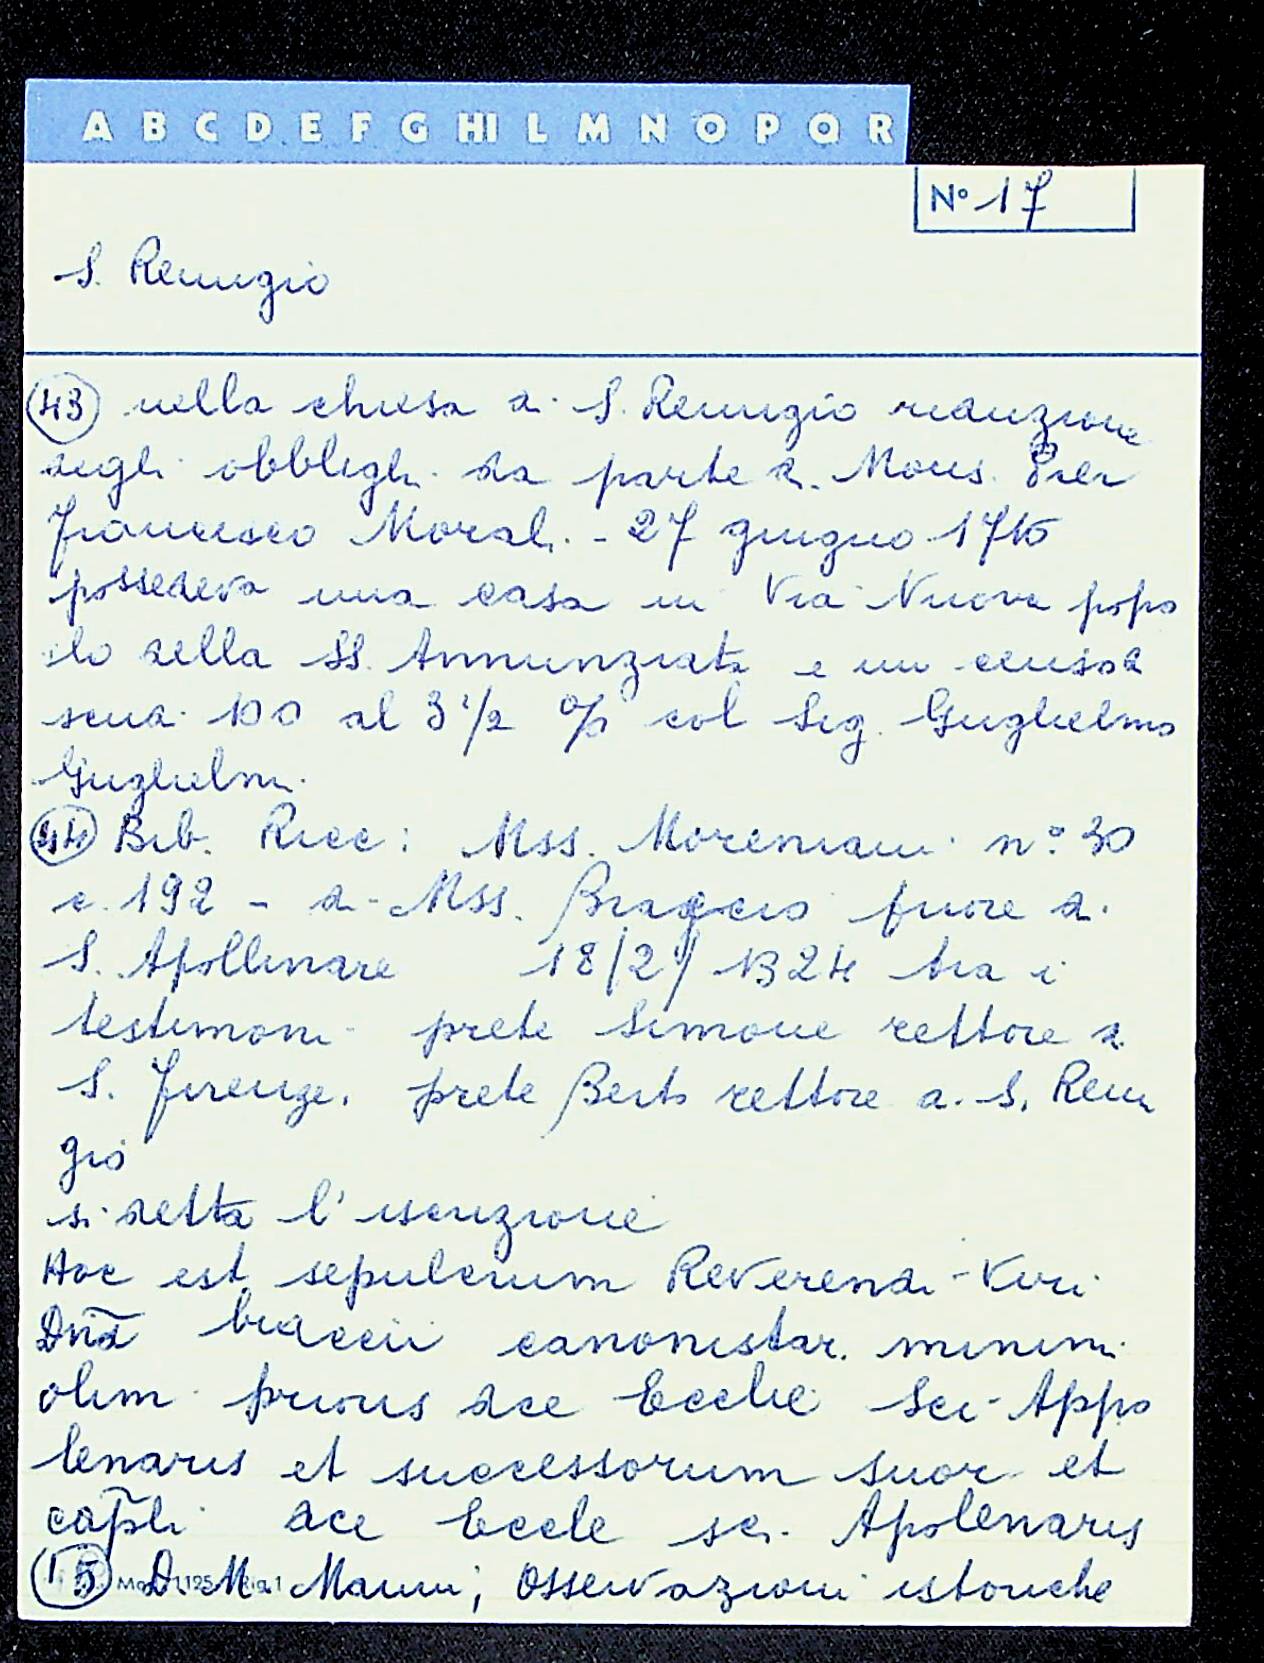 A B C D E F G HI L M N O P Q R
N° 17
S. Remigio
(43) nella chiesa di S. Remigio riduzione
degli obblighi da parte di Mons. Pier
Francesco Morali - 27 giugno 1716
possedeva una casa in Via Nuova popo
lo della SS. Annunziata e un censo di
scudi 100 al 3 1/2 % col Sig. Guglielmo
Guglielmi.
(44) Bib. Ricc: Mss. Moreniani n° 30
c. 192 - di Mss. Braccio priore di
S. Apollinare 18/2/1324 tra i
testimoni prete Simone rettore di
S. Firenze. prete Berto rettore di S. Remi
gio
si detta l'iscrizione
Hoc est sepulcrum Reverendi Viri
Dni braccii canonistar. minimi
olim prioris dce Ecclie Sci Appo
lenaris et successorum suor et
capli dce Eccle sci. Apolenaris
(15) D. M. Manni; Osservazioni istoriche